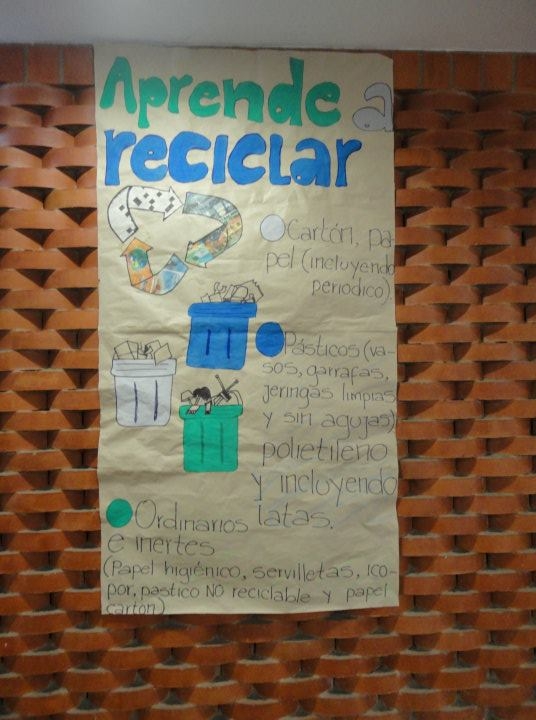 Aprende a
reciclar
Cartón, pa-
pel (incluyendo
periodico).
Pásticos (va-
sos, garrafas,
jeringas limpias
y sin agujas)
polietileno
y incluyendo
latas.
Ordinarios
e inertes
(Papel higiénico, servilletas, ico-
por, pastico NO reciclable y papel
cartón)